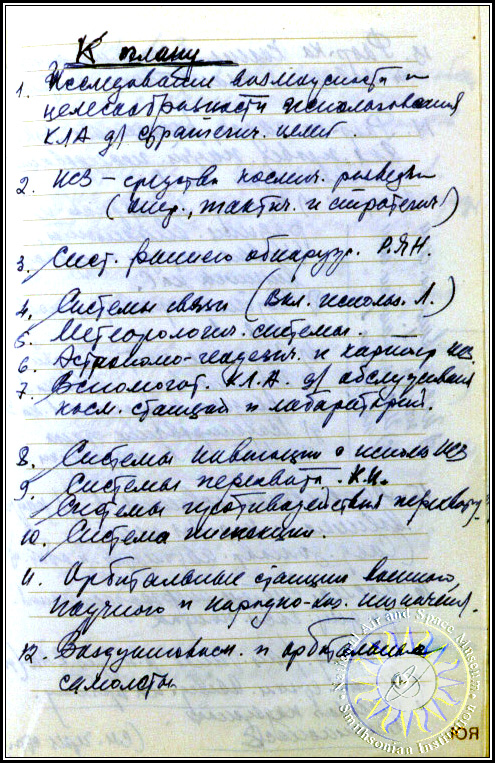 К плану
1. Исследование возможности и
целесообразности использования
КЛА д/ стратегич. целей.
2. ИСЗ – средства космич. разведки
(опер., тактич. и стратегич.)
3. Сист. раннего обнаруж. Р.ЯН.
4. Системы связи (вкл. использ. Л.)
5. Метеорологич. системы.
6. Астрономо-геодезич. и картогр ИСЗ.
7. Вспомогат. К.Л.А. д/ обслуживания
косм. станций и лабораторий.
8. Системы навигации с использ ИСЗ
9. Системы перехвата К.О.
Системы противодействия перехвату.
10. Система инспекции.
11. Орбитальные станции военного,
научного и народно-хоз. назначения.
12. Воздушнокосм. и орбитальные
самолеты
National Air and Space Museum
Smithsonian Institution
ЮЯ